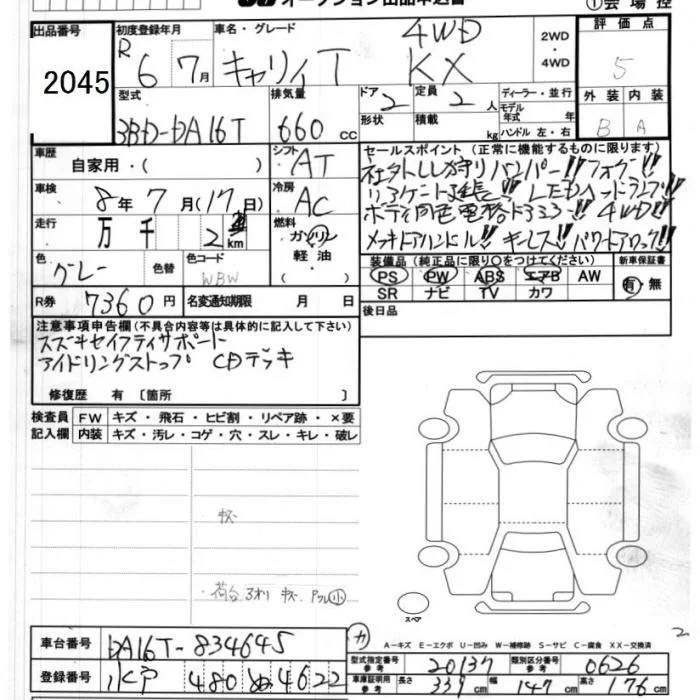 オークション出品申込書 ①会場控
出品番号 初度登録年月 車名・グレード 評価点
2045 R 6年 7月 キャリイT 4WD KX 2WD・4WD 5
型式 排気量 ドア 2 定員 2人 ディーラー・並行 外装 内装
3BD-DA16T 660cc 形状 積載 kg モデル年式 年 ハンドル 左・右 B A
車歴 自家用・( ) シフト AT セールスポイント(正常に機能するものに限ります)
車検 8年 7月(17日) 冷房 AC 社外LLL狩りバンパー!! フォグ!!
リアゲート延長!! LEDヘッドランプ!!
走行 万 千 2 km 燃料 ガソリン 軽油・( ) ボディ同色電格ドアミラー!! 4WD!!
メッキドアハンドル!! キーレス!! パワードアロック!!
色 グレー 色替 色コード WBW 装備品(純正品に限り○をつけてください) 新車保証書
PS PW ABS エアB AW 有・無
SR ナビ TV カワ
R券 7360円 名変通知期限 月 日 後日品
注意事項申告欄(不具合内容等は具体的に記入して下さい)
スズキセイフティサポート
アイドリングストップ CDデッキ
修復歴 有 〔箇所 〕
検査員 FW キズ・飛石・ヒビ割・リペア跡・×要
記入欄 内装 キズ・汚レ・コゲ・穴・スレ・キレ・破レ
キズ
荷台 3オリ キズ Pクル小
スペア
車台番号 DA16T-834645 カ A-キズ E-エクボ U-凹み W-補修跡 S-サビ C-腐食 XX-交換済
型式指定番号 参考 20137 類別区分番号 参考 0626
登録番号 水戸 480 ぬ 4622 車庫証明用 参考 長さ 339cm 幅 147cm 高さ 176cm